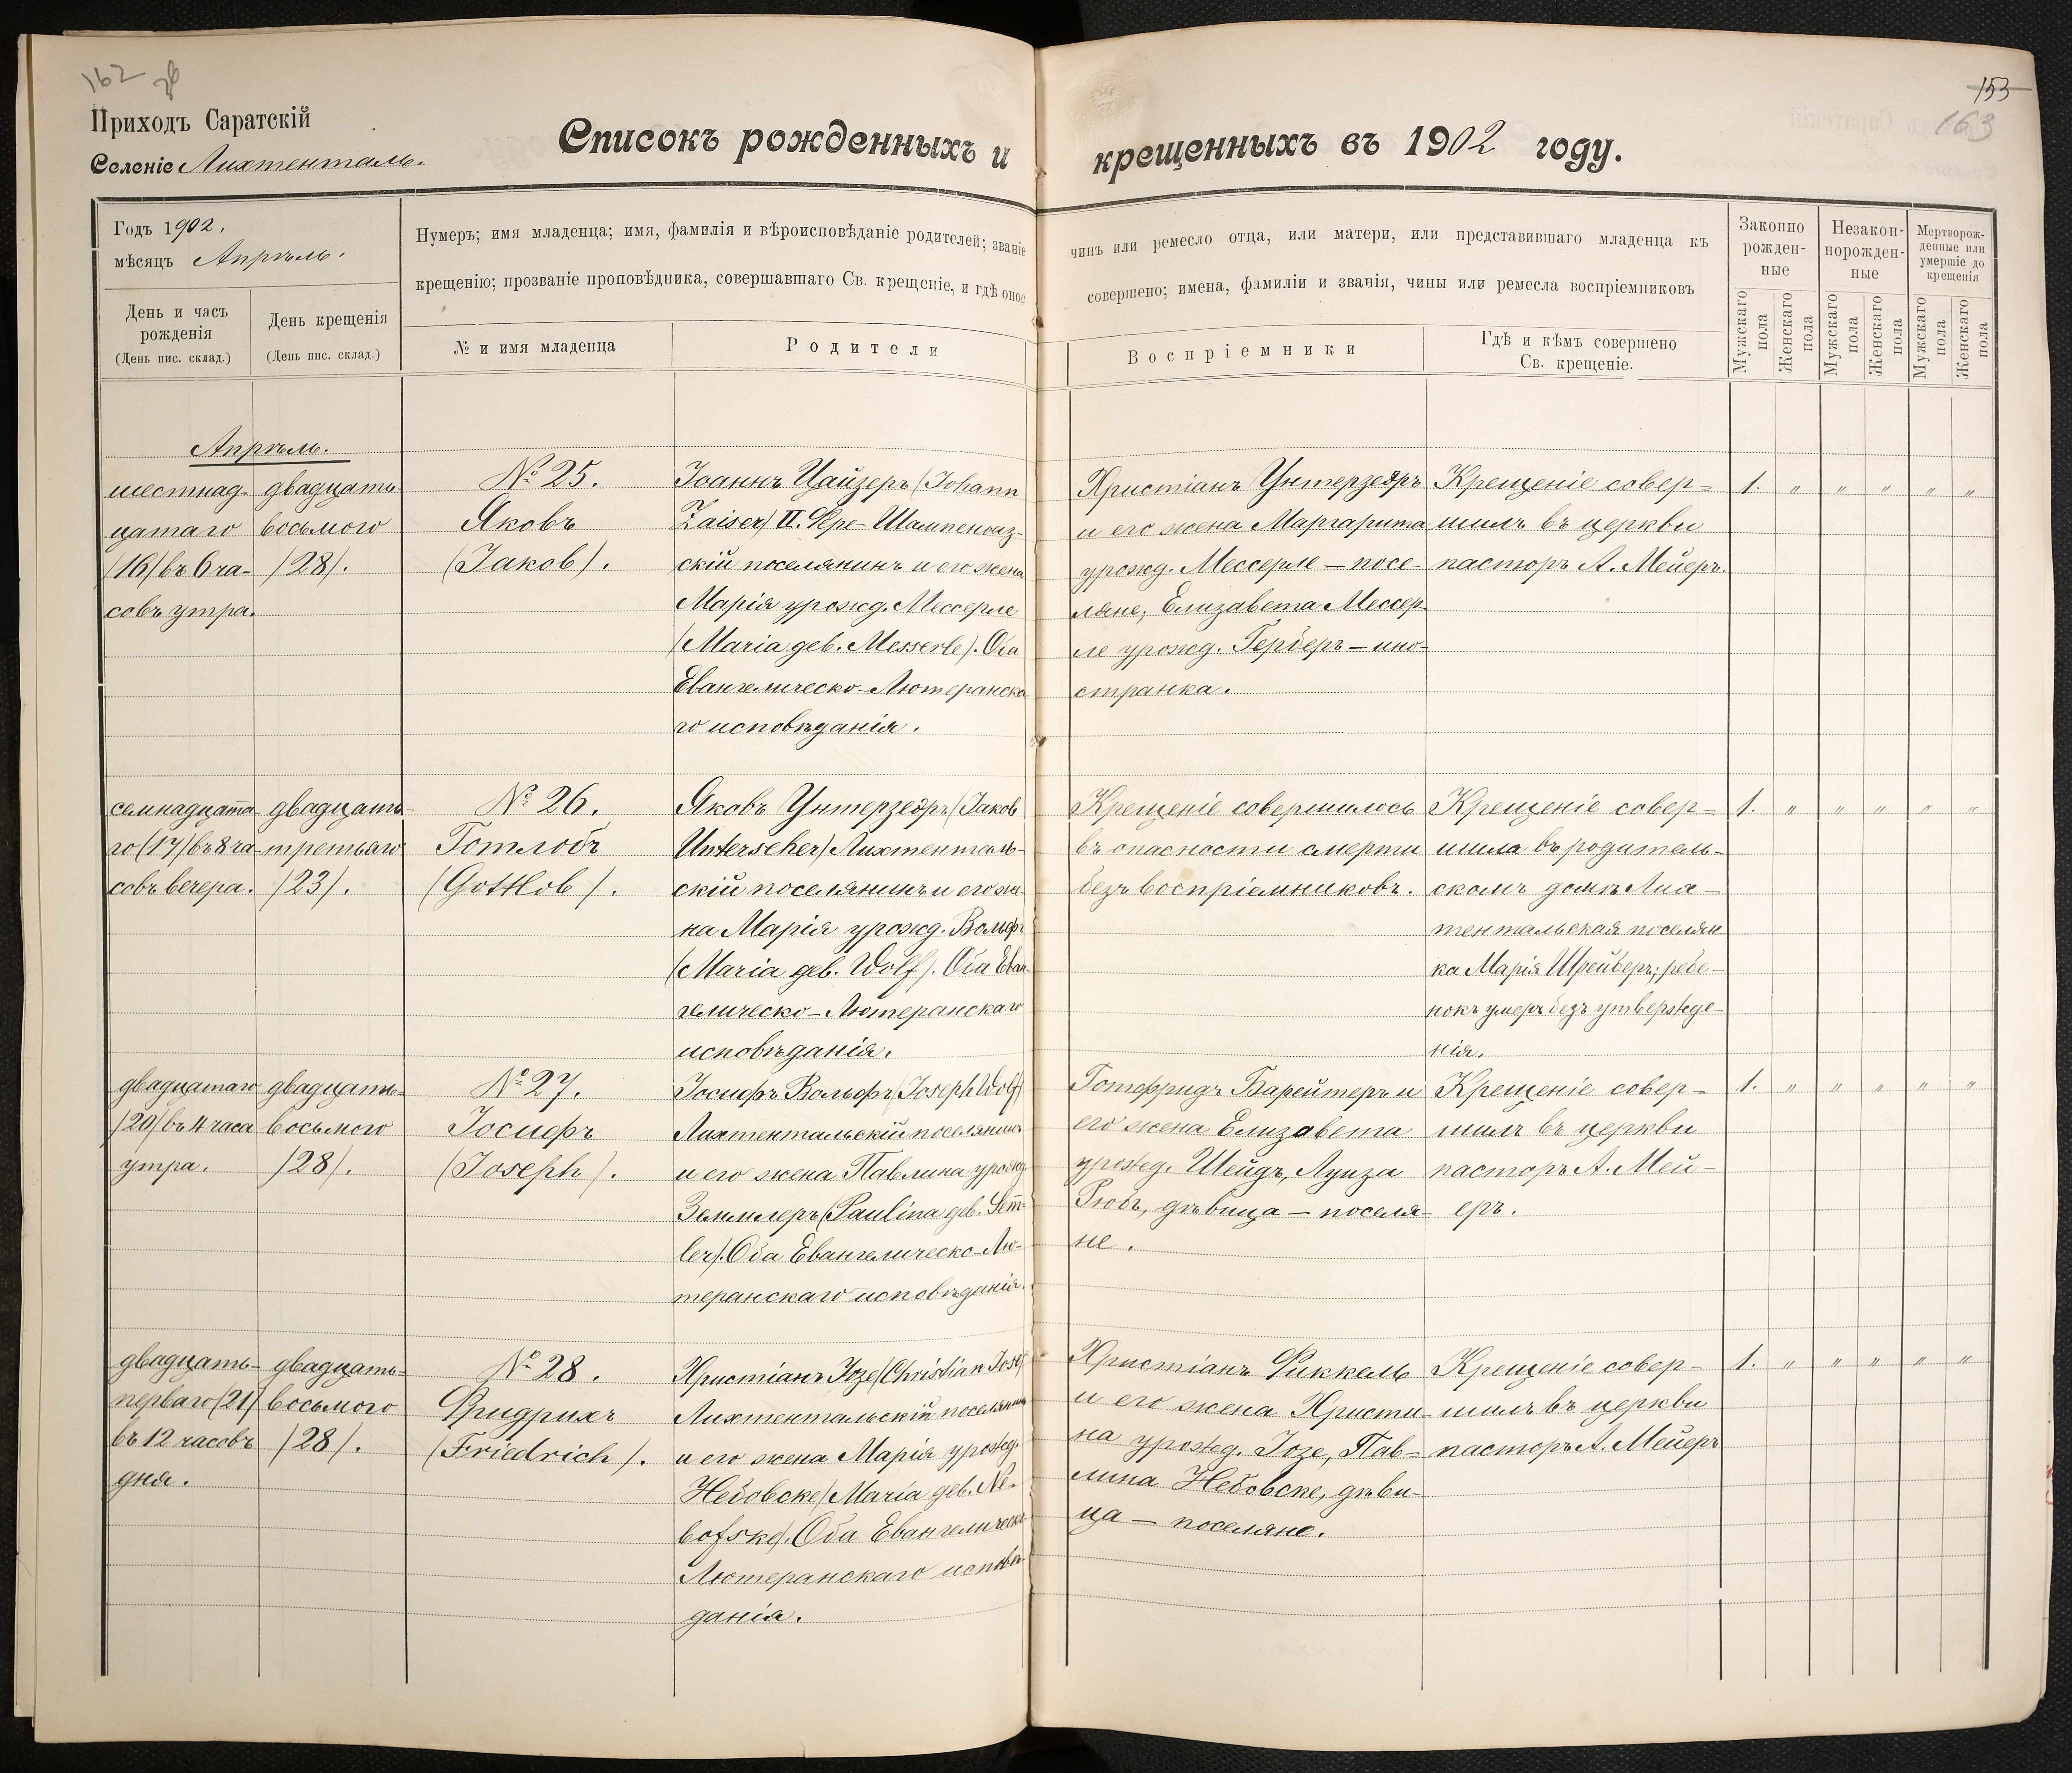 162
153
163
Приходъ Саратскій
Селеніе Лихтенталь.
Списокъ рожденныхъ и крещенныхъ въ 1902 году.
Годъ 1902.
мѣсяцъ Апрѣль.
День и часъ рожденія
(День пис. склад.)
День крещенія
(День пис. склад.)
Нумеръ; имя младенца; имя, фамилія и вѣроисповѣданіе родителей; званіе чинъ или ремесло отца, или матери, или представившаго младенца къ
крещенію; прозваніе проповѣдника, совершавшаго Св. крещеніе, и гдѣ оное совершено; имена, фамиліи и званія, чины или ремесла воспріемниковъ
№ и имя младенца
Родители
Воспріемники
Гдѣ и кѣмъ совершено
Св. крещеніе.
Законно
рожден-
ные
Незакон-
норожден-
ные
Мертворож-
денные или
умершіе до
крещенія
Мужскаго пола
Женскаго пола
Мужскаго пола
Женскаго пола
Мужскаго пола
Женскаго пола
Апрѣль.
шестнад-
цатаго
/16/ въ 6 ча-
совъ утра.
двадцать
восьмого
/28/.
№ 25.
Яковъ
(Jakob).
Іоаннъ Цайзеръ (Johann
Zaiser) II. Фре-Шампенуаз-
скій поселянинъ и его жена
Марія урожд. Мессерле
(Maria geb. Messerle). Оба
Евангелическо-Лютеранска-
го исповѣданія.
Христіанъ Унтерзееръ
и его жена Маргарита
урожд. Мессерле — посе-
ляне; Елизавета Мессер-
ле урожд. Герберъ — ино-
странка.
Крещеніе совер-
шилъ въ церкви
пасторъ А. Мейеръ.
1. " " " " "
семнадцата-
го (17) въ 8 ча-
совъ вечера.
двадцать
третьяго
/23/.
№ 26.
Готлобъ
(Gottlob).
Яковъ Унтерзееръ (Jakob
Unterseher) Лихтенталь-
скій поселянинъ и его же-
на Марія урожд. Вольфъ
(Maria geb. Wolf). Оба Еван-
гелическо-Лютеранскаго
исповѣданія.
Крещеніе совершилось
въ опасности смерти
безъ воспріемниковъ.
Крещеніе совер-
шила въ родитель-
скомъ домѣ Лих-
тентальская поселян-
ка Марія Шрейберъ; ребе-
нокъ умеръ безъ утвержде-
нія.
1. " " " " "
двадцатаго
/20/ въ 4 часа
утра.
двадцать-
восьмого
/28/.
№ 27.
Іосифъ
(Joseph).
Іосифъ Вольфъ (Joseph Wolf)
Лихтентальскій поселянинъ
и его жена Павлина урожд.
Земмлеръ (Paulina geb. Sem̄-
ler). Оба Евангелическо-Лю-
теранскаго исповѣданія.
Готфридъ Барейтеръ и
его жена Елизавета
урожд. Шейдъ, Луиза
Рюбъ, дѣвица — поселя-
не.
Крещеніе совер-
шилъ въ церкви
пасторъ А. Мей-
еръ.
1. " " " " "
двадцать-
перваго (21)
въ 12 часовъ
дня.
двадцать-
восьмого
/28/.
№ 28.
Фридрихъ
(Friedrich).
Христіанъ Іозе (Christian Jose)
Лихтентальскій поселянинъ
и его жена Марія урожд.
Небовске (Maria geb. Ne-
bofske). Оба Евангелическо-
Лютеранскаго исповѣ-
данія.
Христіанъ Риккель
и его жена Христи-
на урожд. Іозе, Пав-
лина Небовске, дѣви-
ца — поселяне.
Крещеніе совер-
шилъ въ церкви
пасторъ А. Мейеръ
1. " " " " "